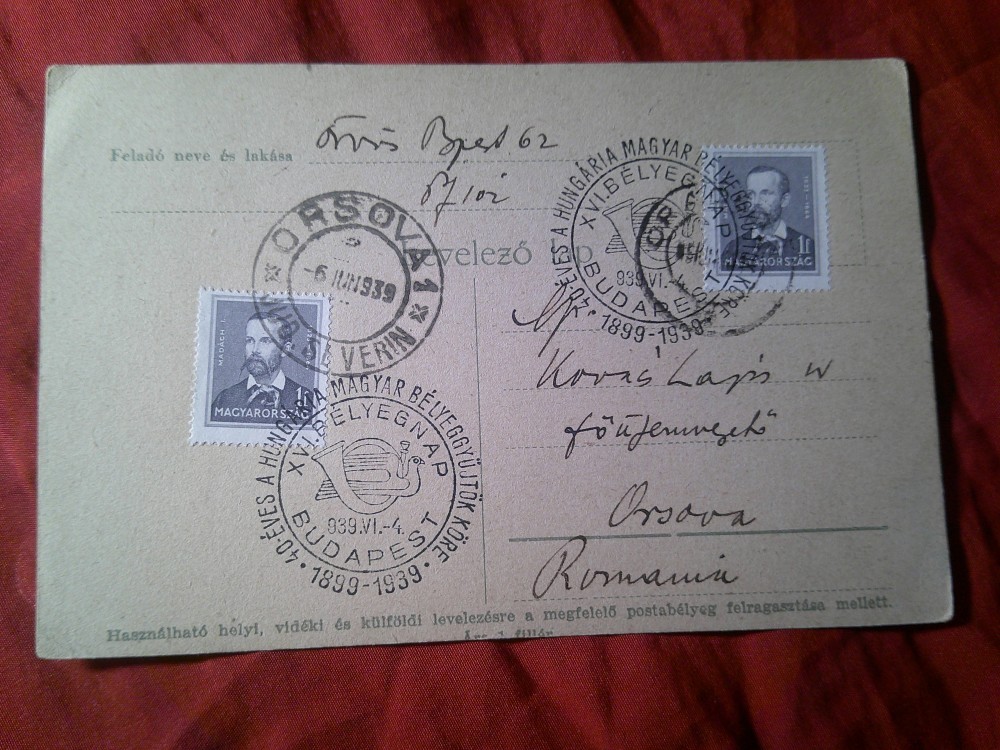 Feladó neve és lakása
Bpest 62
Levelező lap
ORSOVA 1
-6 IUN 939
JUD. SEVERIN
40-ÉVES A HUNGÁRIA MAGYAR BÉLYEGGYÜJTŐK KÖRE
XVI. BÉLYEGNAP
939.VI.-4.
BUDAPEST
1899-1939
1f
MAGYARORSZÁG
MADÁCH I
1f
MAGYARORSZÁG
40-ÉVES A HUNGÁRIA MAGYAR BÉLYEGGYÜJTŐK KÖRE
XVI. BÉLYEGNAP
939.VI.-4.
BUDAPEST
1899-1939
Kovács Lajos
Orsova
Romania
Használható helyi, vidéki és külföldi levelezésre a megfelelő postabélyeg felragasztása mellett.
Ára 1 fillér